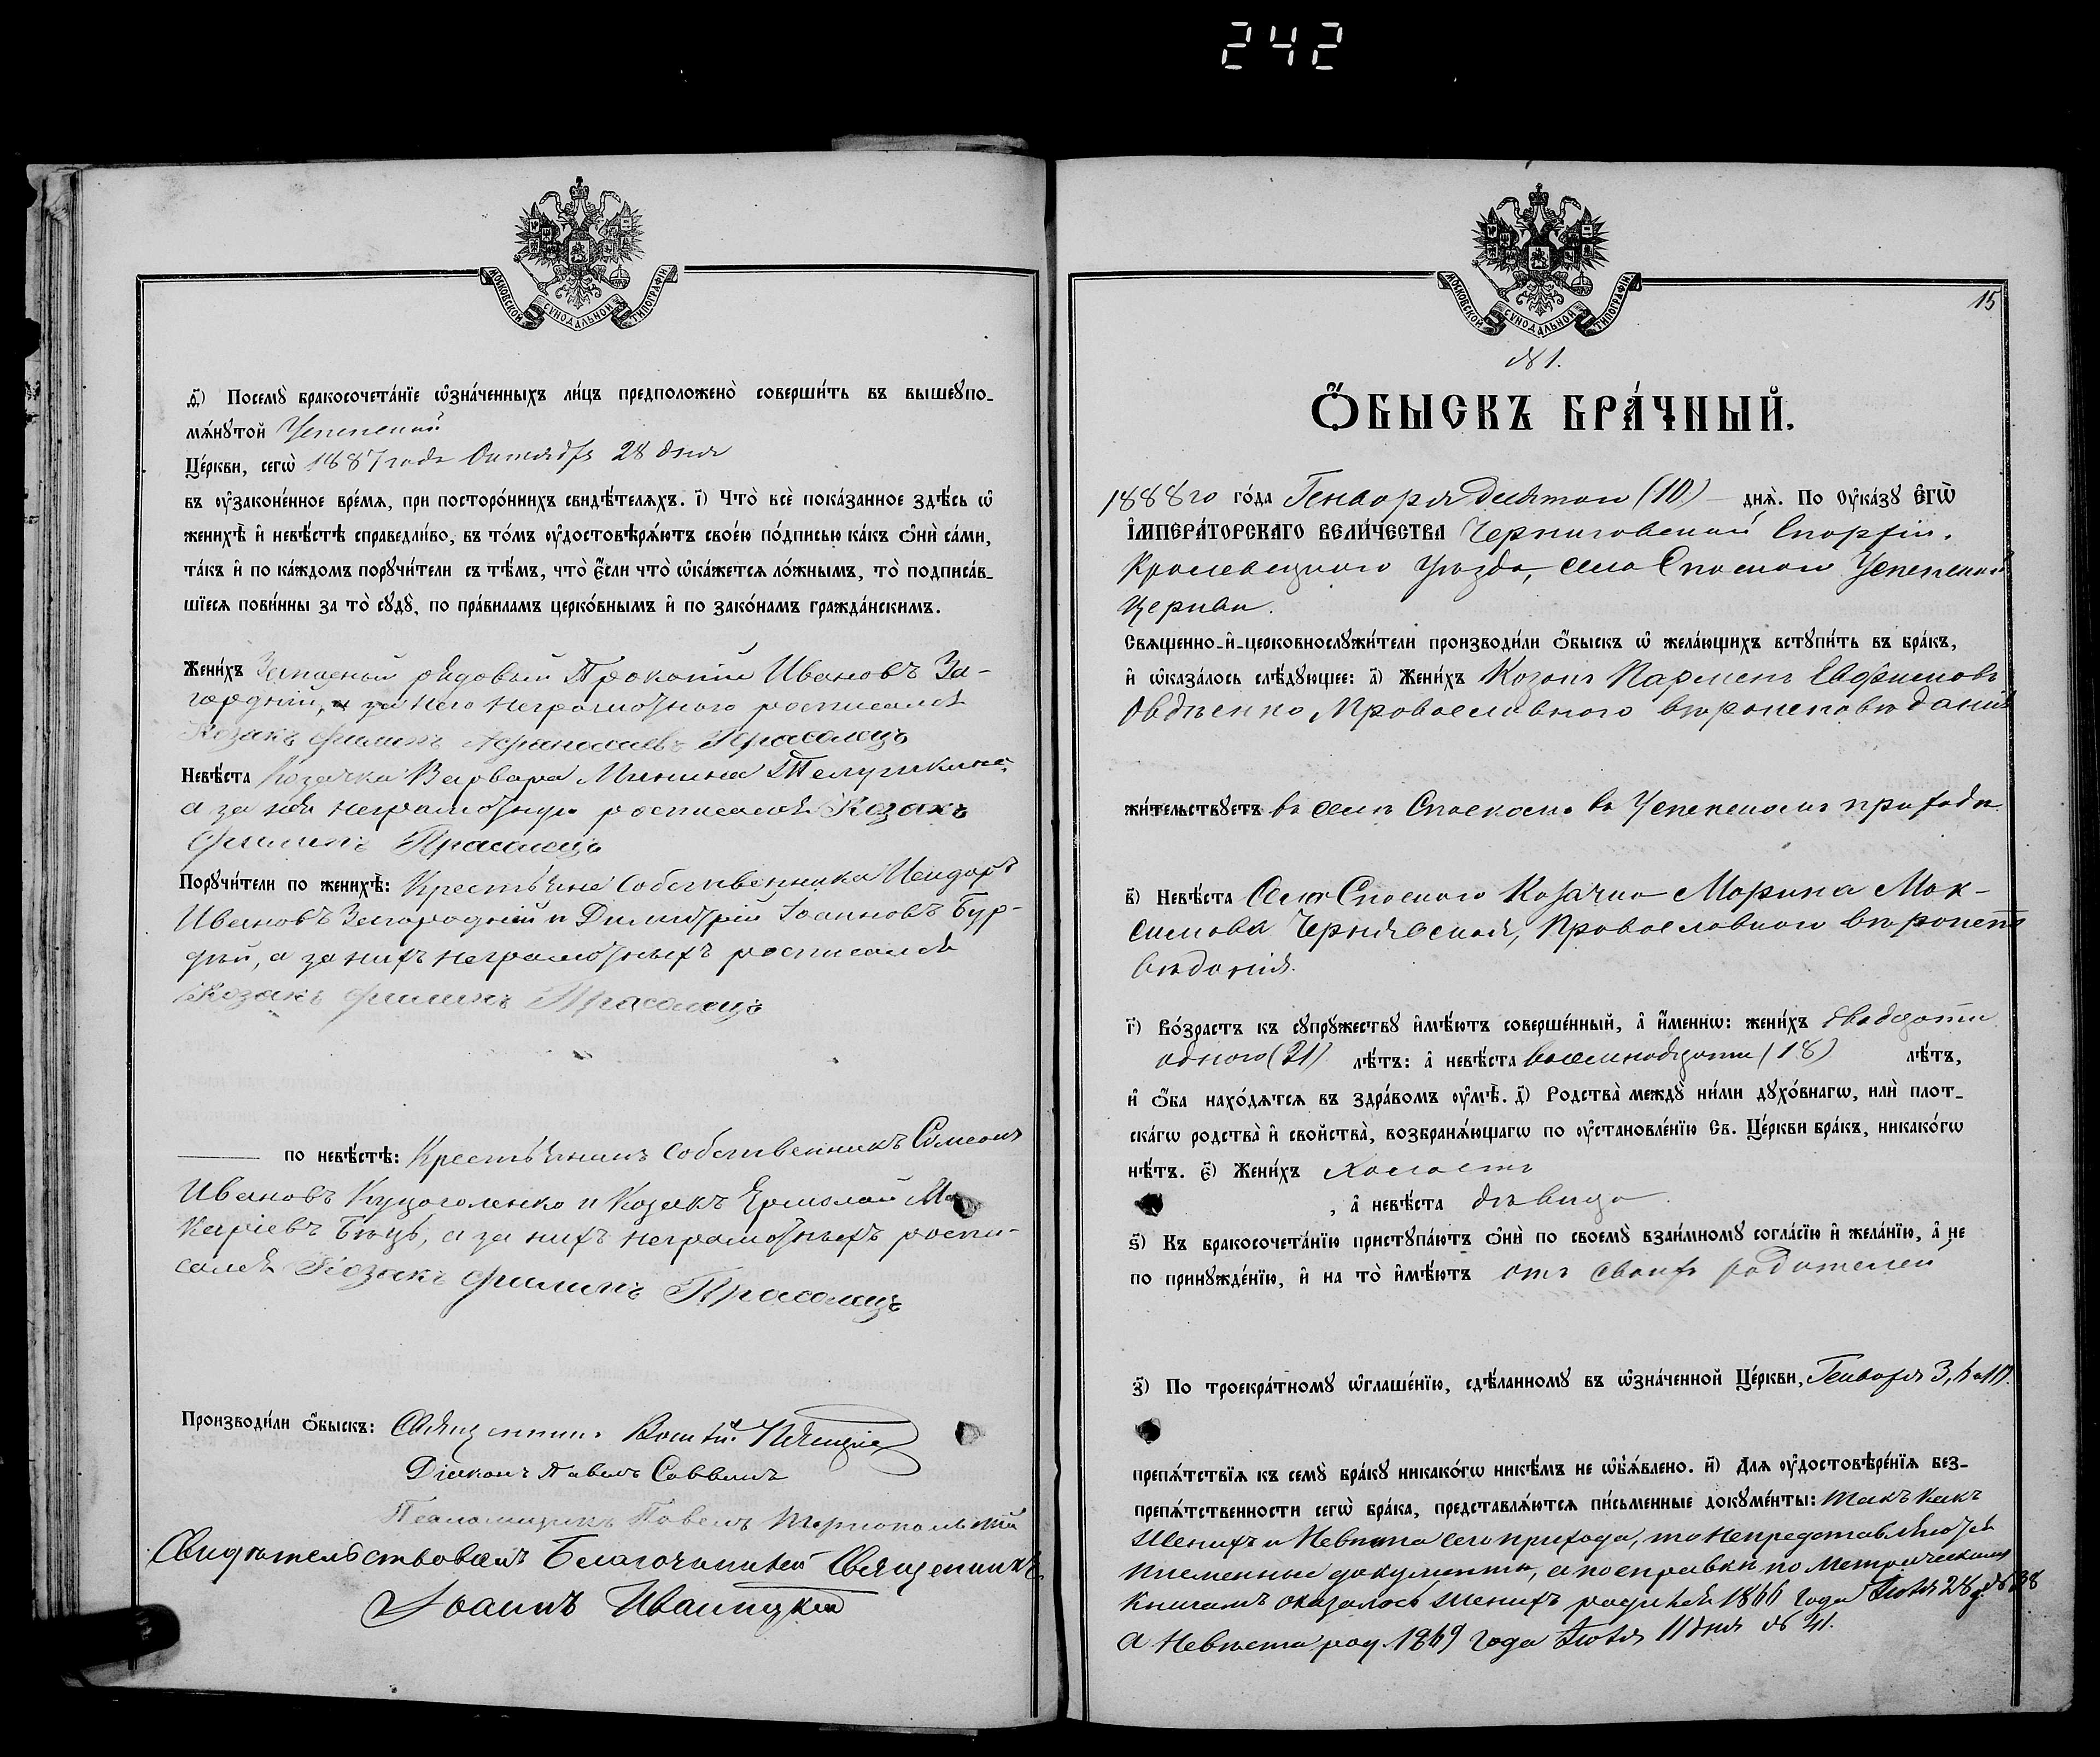 242
МОСКОВСКОЙ СѴНОДАЛЬНОЙ ТИПОГРАФІИ
д҃) Посемꙋ̀ бракосочета́нїе ѡ҆зна́ченныхъ ли́цъ предположено̀ соверши́ть въ вышеꙋпо-
мѧ́нꙋтой Успенской
Це́ркви, сегѡ̀ 1887 года Октября 28 дня
въ ᲂу҆законе́нное вре́мѧ, при посторо́ннихъ свидѣ́телѧхъ. і҃) Что̀ всѐ пока́занное здѣ́сь ѡ҆
женихѣ̀ и҆ невѣ́стѣ справедли́во, въ то́мъ ᲂу҆достовѣрѧ́ютъ свое́ю по́дписью ка́къ ѻ҆нѝ са́ми,
та́къ и҆ по ка́ждомъ порꙋчи́тели съ тѣ́мъ, что̀ є҆́сли что̀ ѡ҆ка́жетсѧ ло́жнымъ, то̀ подписа́в-
шїесѧ пови́нны за то̀ сꙋдꙋ̀, по пра́виламъ церко́внымъ и҆ по зако́намъ гражда́нскимъ.
Жени́хъ Запасной рядовый Прокопій Ивановъ За-
городній, а за него неграмотнаго росписался
Козакъ Филипъ Афанасиевъ Прасолецъ
Невѣ́ста Козачка Варвара Минина Телушкина
а за нея неграмотную росписался Козакъ
Филипъ Прасолецъ
Порꙋчи́тели по женихѣ̀: Крестьяне Собственники Исидоръ
Ивановъ Загородній и Димитрій Іоанновъ Бур-
а за нихъ неграмотныхъ росписался
Козакъ Филипъ Прасолецъ
по невѣ́стѣ: Крестьянинъ Собственникъ Симеонъ
Ивановъ Куцоголенко и Козакъ Ермолай Ма
каріевъ а за нихъ неграмотныхъ роспи-
сался Козакъ Филипъ Прасолецъ
Производи́ли ѻ҆́быскъ: Священникъ
Діаконъ Павелъ Саввинъ
Псаломщикъ Павелъ
Свидѣтельствовалъ Благочинный Священникъ
Іоаннъ Иваницкій
МОСКОВСКОЙ СѴНОДАЛЬНОЙ ТИПОГРАФІИ
15
№ 1.
Ѻ҆́БЫСКЪ БРА́ЧНЫЙ.
1888го го́да Генваря десятого (10) днѧ̀. По Оу҆ка́зꙋ Є҆ГѠ̀
І҆МПЕРА́ТОРСКАГО ВЕЛИ́ЧЕСТВА Черниговской Епархіи.
Кролевецкого Уѣзда, села Спаского Успенской
Церкви.
Свѧщенно-и҆-церковнослꙋжи́тели производи́ли ѻ҆́быскъ ѡ҆ жела́ющихъ встꙋпи́ть въ бра́къ,
и҆ ѡ҆каза́лось слѣ́дꙋющее: а҃) Жени́хъ Козакъ Парменъ Евфимовъ
Овдѣенко, Православного вѣроисповѣданія
жи́тельствꙋетъ въ селѣ Спаскомъ въ Успенскомъ приходѣ
в҃) Невѣ́ста Села Спаского Козачка Марина Мак-
симова Чернявская, Православного вѣроиспо
вѣданія.
г҃) Во́зрастъ къ сꙋпрꙋ́жествꙋ и҆мѣ́ютъ соверше́нный, а҆ и҆́меннѡ: жени́хъ двадцати
одного (21) лѣ́тъ: а҆ невѣ́ста восемнадцати (18) лѣ́тъ,
и҆ ѻ҆́ба нахо́дѧтсѧ въ здра́вомъ ᲂу҆мѣ̀. д҃) Родства̀ междꙋ̀ ни́ми дꙋхо́внагѡ, илѝ плот-
ска́гѡ родства̀ и҆ свойства̀, возбранѧ́ющагѡ по ᲂу҆становле́нїю Св. Це́ркви бра́къ, никако́гѡ
нѣ́тъ. є҃) Жени́хъ Холостъ
, а҆ невѣ́ста дѣвица.
ѕ҃) Къ бракосочета́нїю пристꙋпа́ютъ ѻ҆нѝ по своемꙋ̀ взаи́мномꙋ согла́сїю и҆ жела́нїю, а҆ не
по принꙋжде́нїю, и҆ на то̀ и҆мѣ́ютъ отъ своихъ родителей
з҃) По троекра́тномꙋ ѡ҆глаше́нїю, сдѣ́ланномꙋ въ ѡ҆зна́ченной Це́ркви, Генваря 3, 6 и 10.
препѧ́тствїѧ къ семꙋ̀ бра́кꙋ никако́гѡ никѣ́мъ не ѡ҆б̾ѧ́влено. и҃) Длѧ ᲂу҆достовѣре́нїѧ без-
препѧ́тственности сегѡ̀ бра́ка, представлѧ́ютсѧ пи́сьменные докꙋме́нты: Такъ какъ
Женихъ и Невѣста сего прихода, то непредставляются
писменные документы, а по справкѣ по Метрическимъ
книгамъ оказалось женихъ родился 1866 года Іюля 28 д. № 38
а Невѣста род. 1869 года Іюля 11 дня № 41.